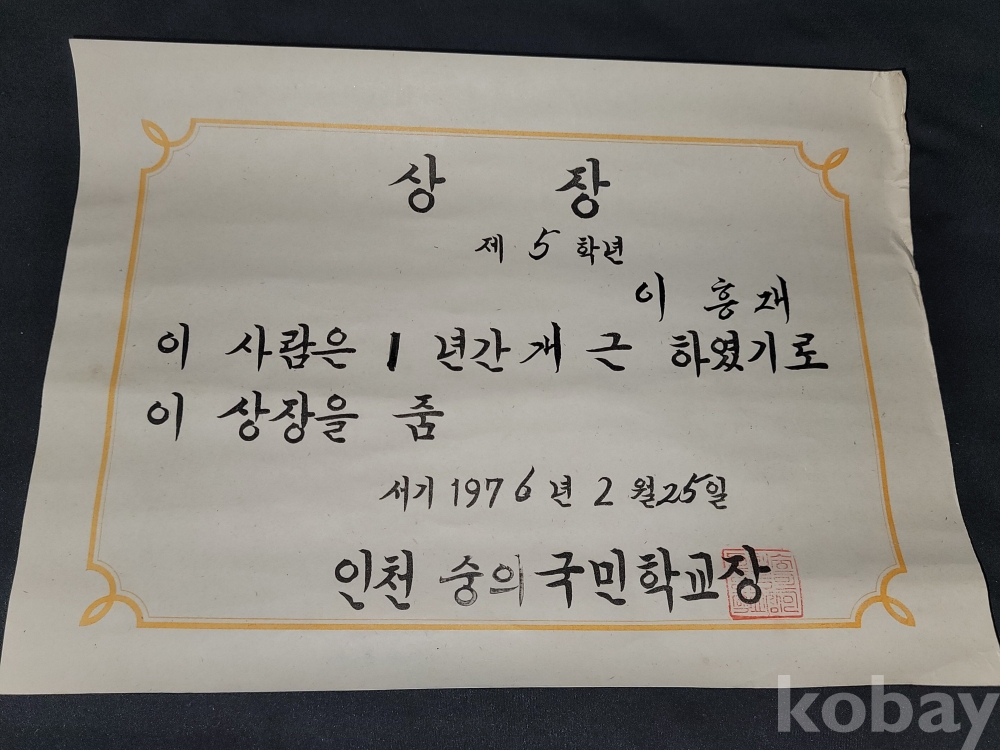 상 장
제 5 학년
이 흥 재
이 사람은 1 년간 개 근 하였기로
이 상장을 줌
서기 1976 년 2 월 25 일
인천 숭의 국민학교장
kobay